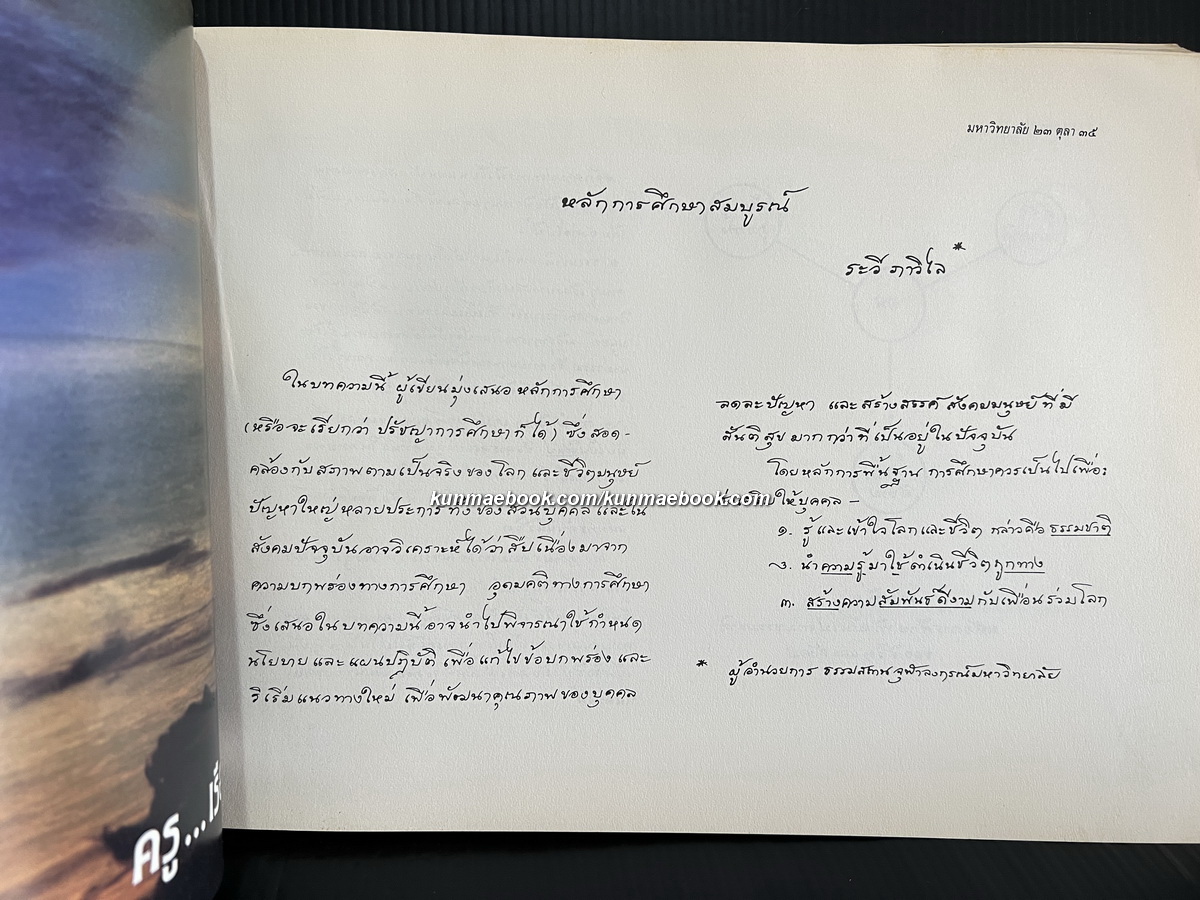 มหาวิทยาลัย ๒๓ ตุลา ๓๕
หลักการศึกษาสมบูรณ์
ระวี ภาวิไล*
ในบทความนี้ ผู้เขียนมุ่งเสนอ หลักการศึกษา
(หรือจะเรียกว่า ปรัชญาการศึกษาก็ได้) ซึ่งสอด-
คล้องกับสภาพตามเป็นจริงของโลก และชีวิตมนุษย์
ปัญหาใหญ่หลายประการ ทั้งของส่วนบุคคล และใน
สังคมปัจจุบัน อาจวิเคราะห์ได้ว่าสืบเนื่องมาจาก
ความบกพร่องทางการศึกษา อุดมคติทางการศึกษา
ซึ่งเสนอในบทความนี้ อาจนำไปพิจารณาใช้กำหนด
นโยบาย และแผนปฏิบัติ เพื่อแก้ไขข้อบกพร่อง และ
ริเริ่มแนวทางใหม่ เพื่อพัฒนาคุณภาพของบุคคล
ลดละปัญหา และสร้างสรรค์ สังคมมนุษย์ ที่มี
สันติสุข มากกว่าที่เป็นอยู่ในปัจจุบัน
โดยหลักการพื้นฐาน การศึกษาควรเป็นไปเพื่อ:
ให้บุคคล –
๑. รู้ และเข้าใจโลกและชีวิต กล่าวคือ ธรรมชาติ
๒. นำความรู้มาใช้ดำเนินชีวิตถูกทาง
๓. สร้างความสัมพันธ์ดีงามกับเพื่อนร่วมโลก
* ผู้อำนวยการ ธรรมสถาน จุฬาลงกรณ์มหาวิทยาลัย
kunmaebook.com/kunmaebook.com
ครู...